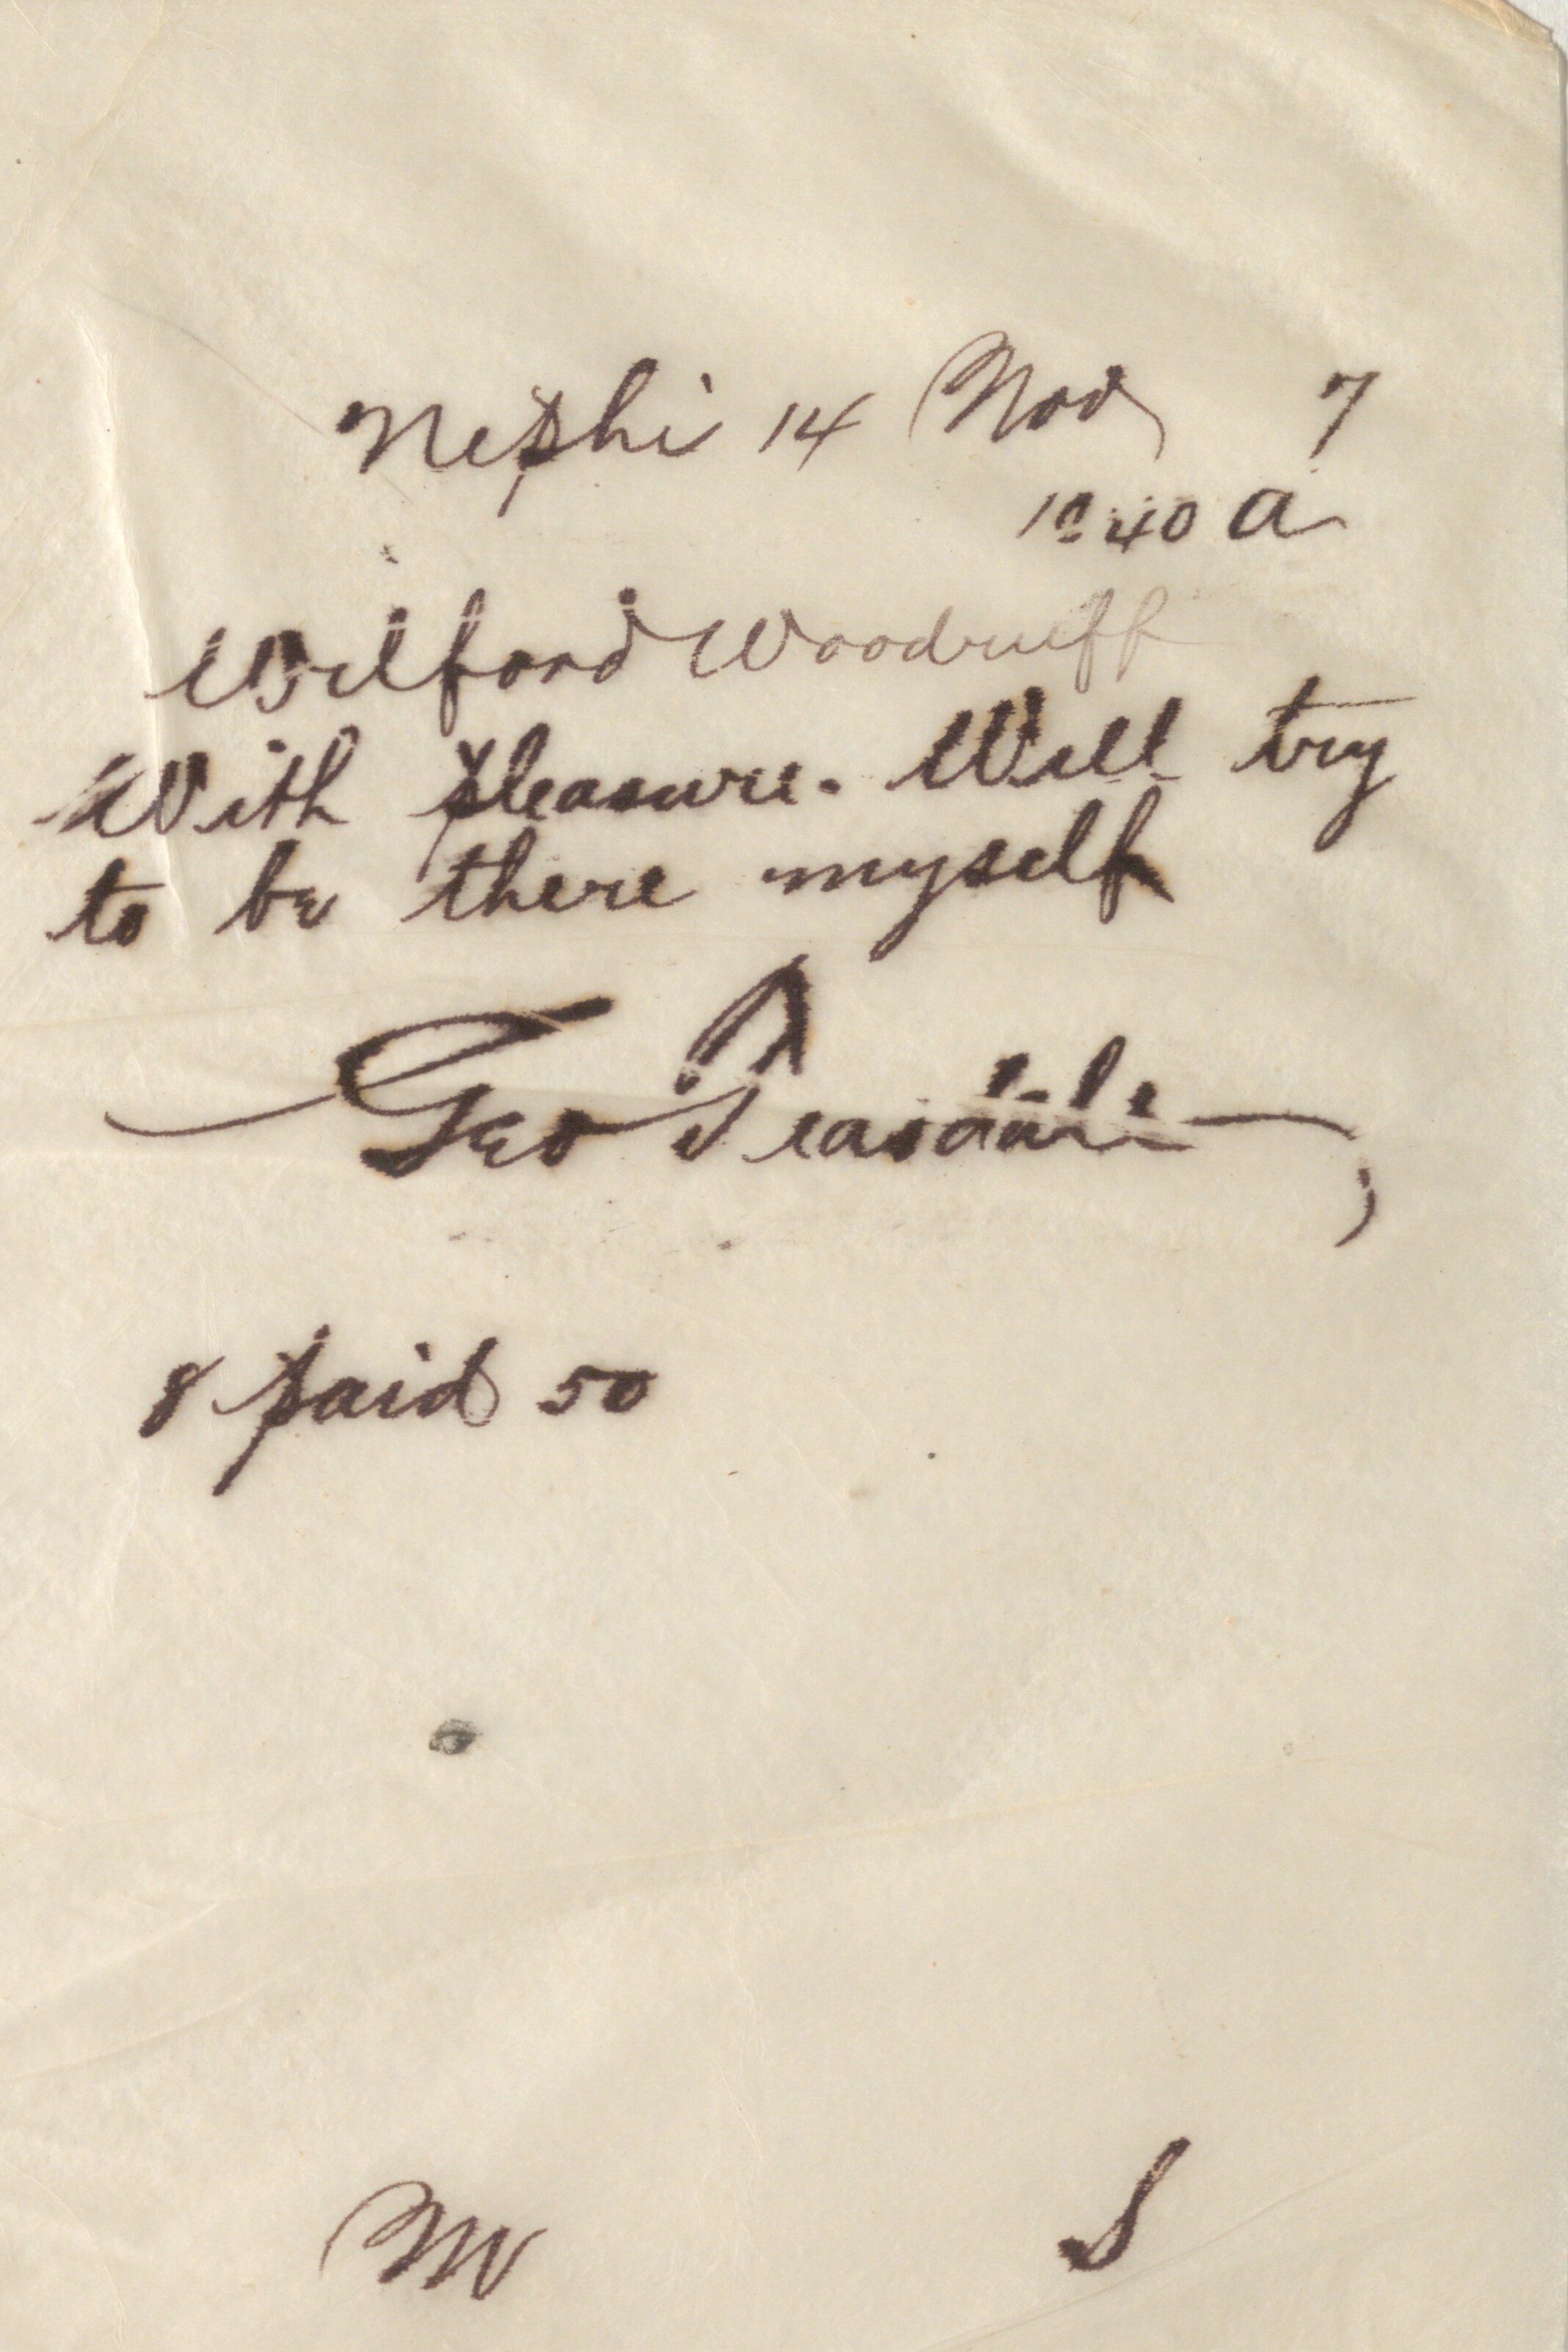 Nephi 14 Nov 7
10 40 a
Wilford Woodruff
With pleasure. Will try
to be there myself
Geo Teasdale
8 paid 50
M S